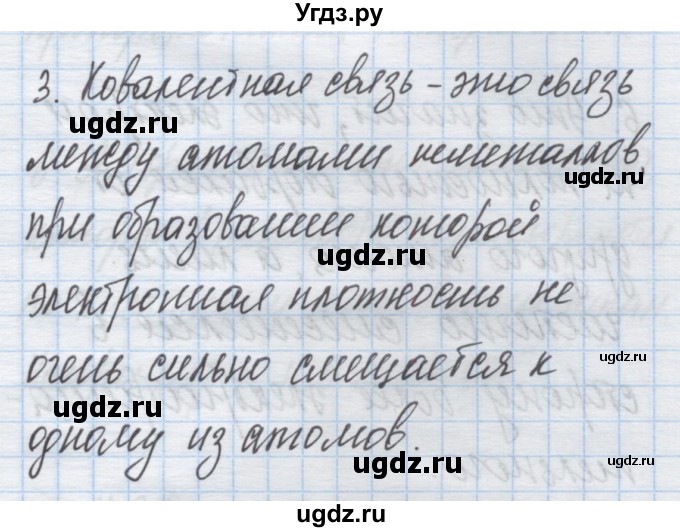 Угдз.ру
3. Ковалентная связь - это связь
ugdz.ru
между атомами неметаллов
ugdz.ru
при образовании которой
ugdz.ru
электронная плотность не
очень сильно смещается к
ugdz.ru
одному из атомов.
ugdz.ru
ugdz.ru
Угдз.ру